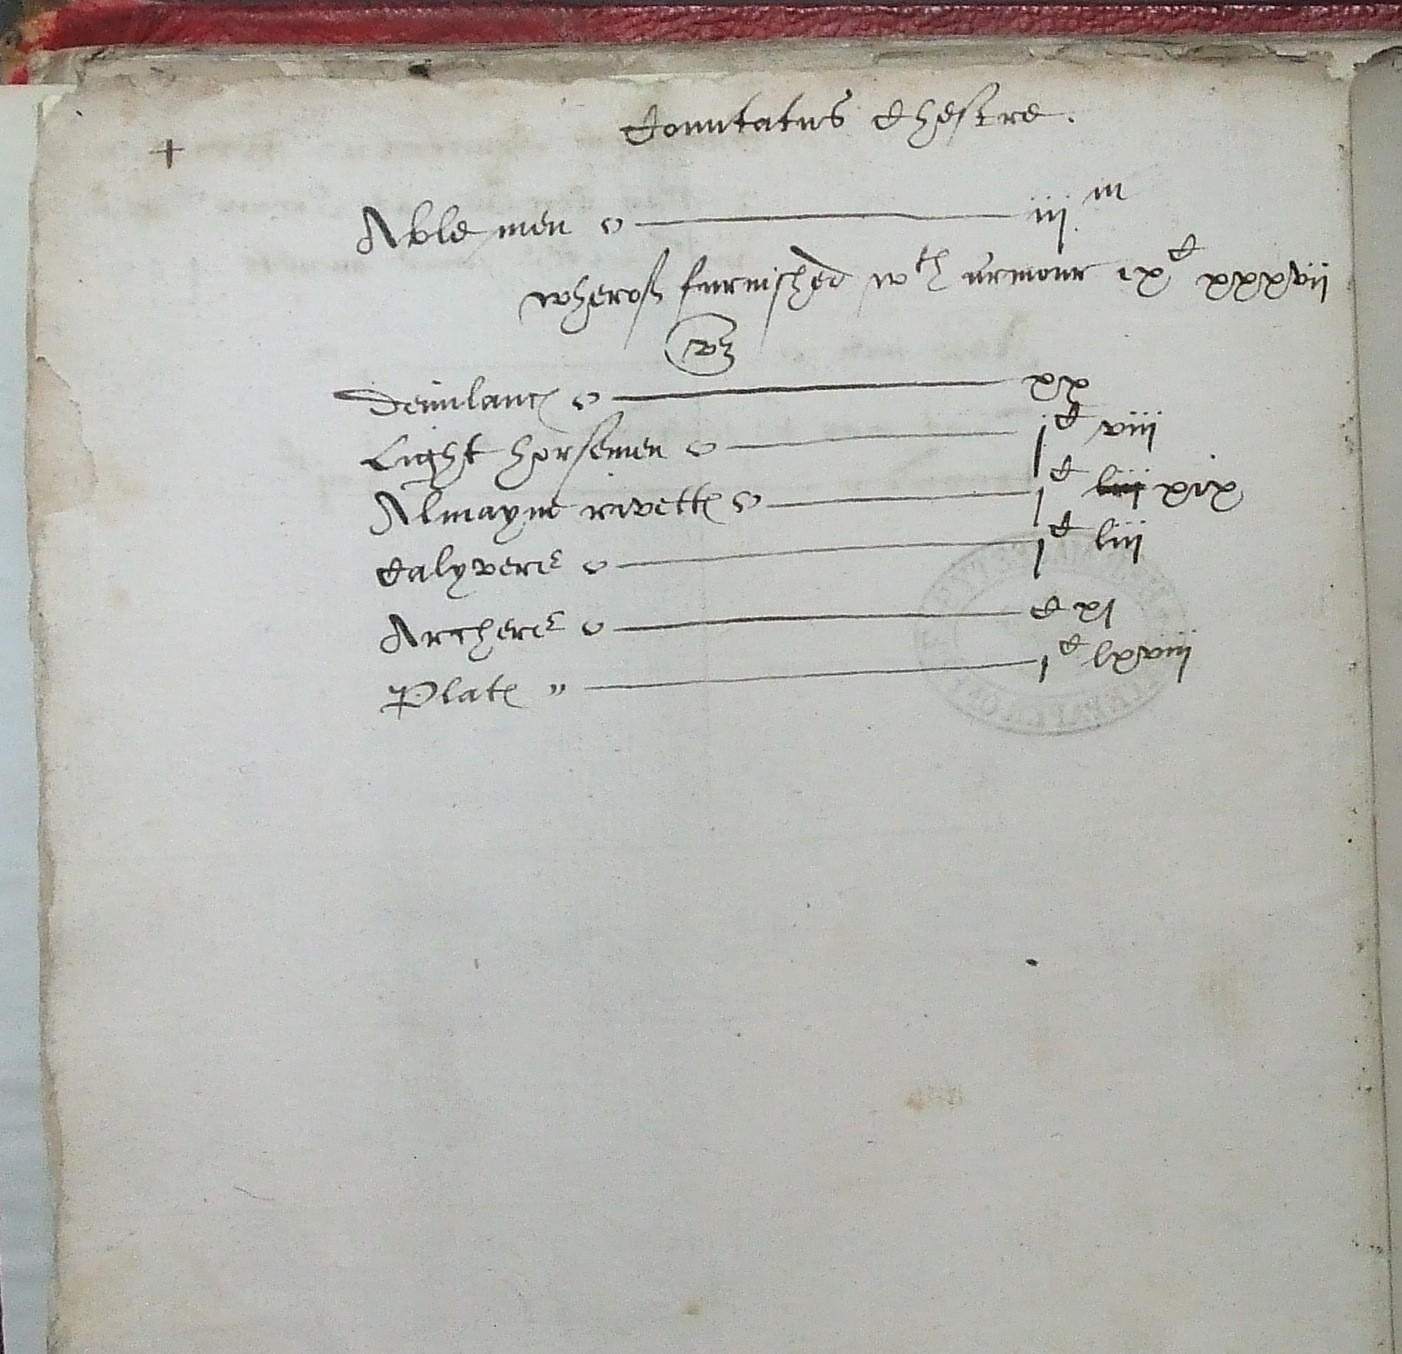 +
Comitatus Chestre.
Able men iij m
wherof furnished wth armour ix C xxxvii
vz
Demilances xx
Light horsemen j C viii
Almayne rivettes j C liij xix
Calyvers j C liij
Archers C xl
Plates j C lxviij